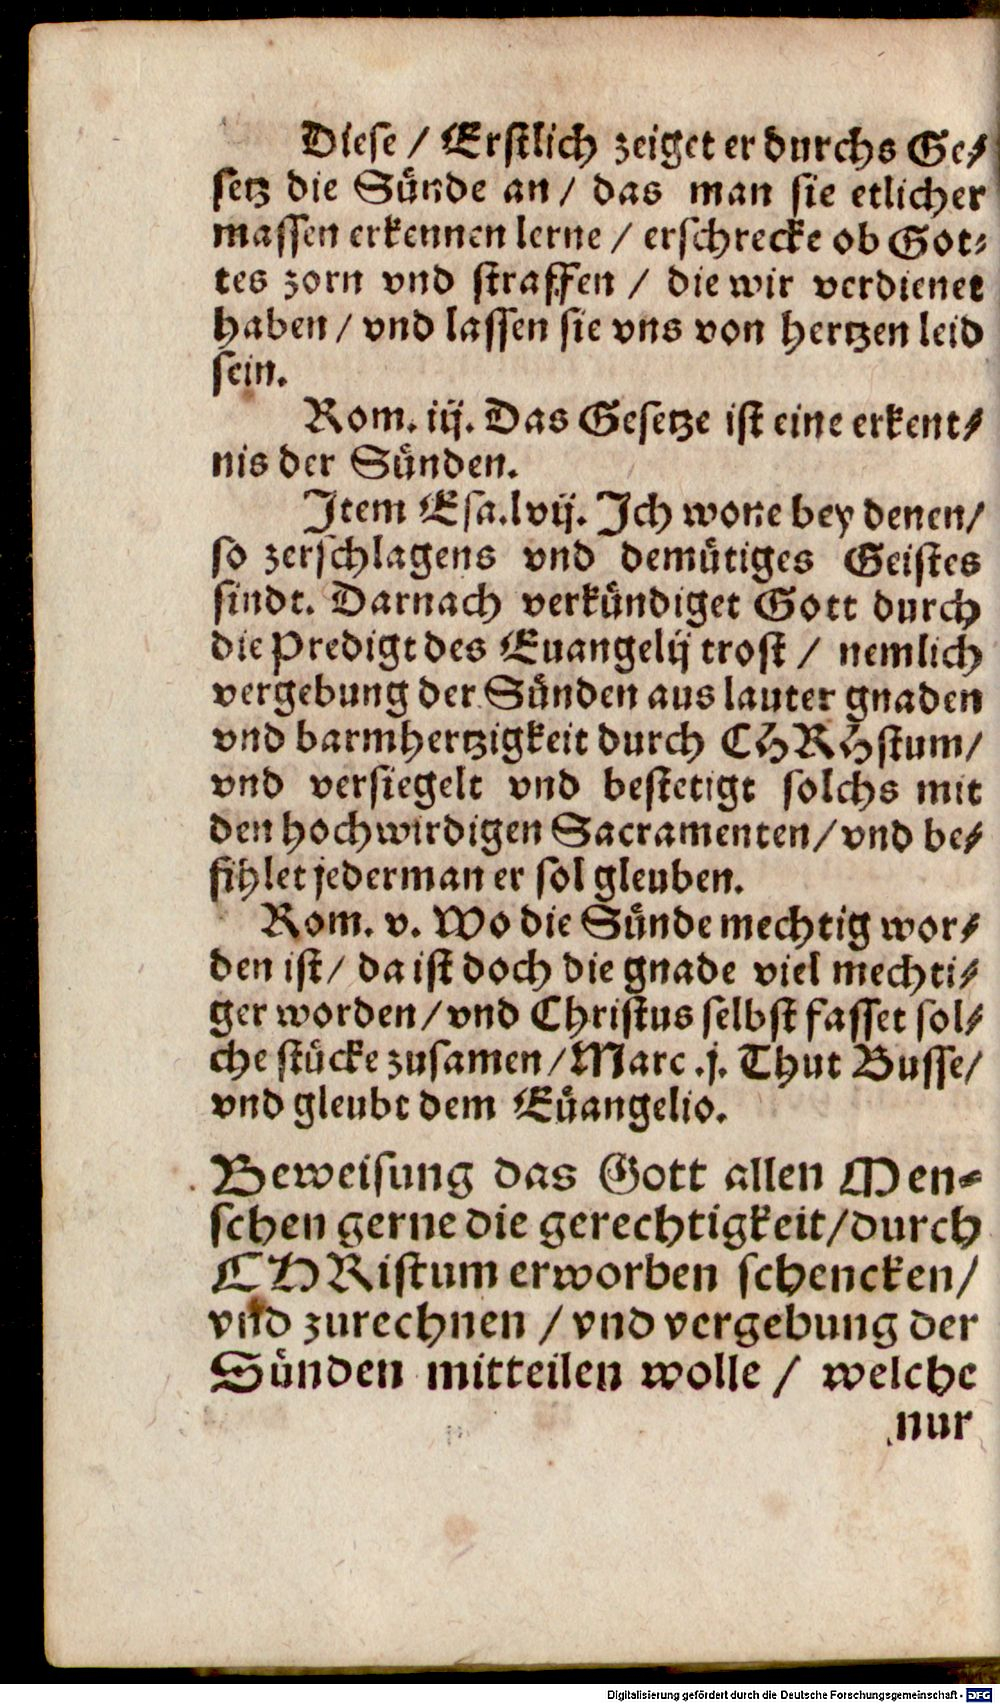 Diese / Erstlich zeiget er durchs Ge⸗
setz die Sünde an / das man sie etlicher
massen erkennen lerne / erschrecke ob Got⸗
tes zorn vnd straffen / die wir verdienet
haben / vnd lassen sie vns von hertzen leid
sein.
Rom. iij. Das Gesetze ist eine erkent⸗
nis der Sünden.
Item Esa.lvij. Ich wone bey denen/
so zerschlagens vnd demütiges Geistes
sindt. Darnach verkündiget Gott durch
die Predigt des Euangelij trost / nemlich
vergebung der Sünden aus lauter gnaden
vnd barmhertzigkeit durch CHRYstum/
vnd versiegelt vnd bestetigt solchs mit
den hochwirdigen Sacramenten/vnd be⸗
fihlet jederman er sol gleuben.
Rom. v. Wo die Sünde mechtig wor⸗
den ist/ da ist doch die gnade viel mechti⸗
ger worden/vnd Christus selbst fasset sol⸗
che stücke zusamen/Marc .j. Thut Busse/
vnd gleubt dem Eüangelio.
Beweisung das Gott allen Men⸗
schen gerne die gerechtigkeit/durch
CHRistum erworben schencken/
vnd zurechnen /vnd vergebung der
Sünden mitteilen wolle / welche
nur
Digitalisierung gefördert durch die Deutsche Forschungsgemeinschaft - DFG